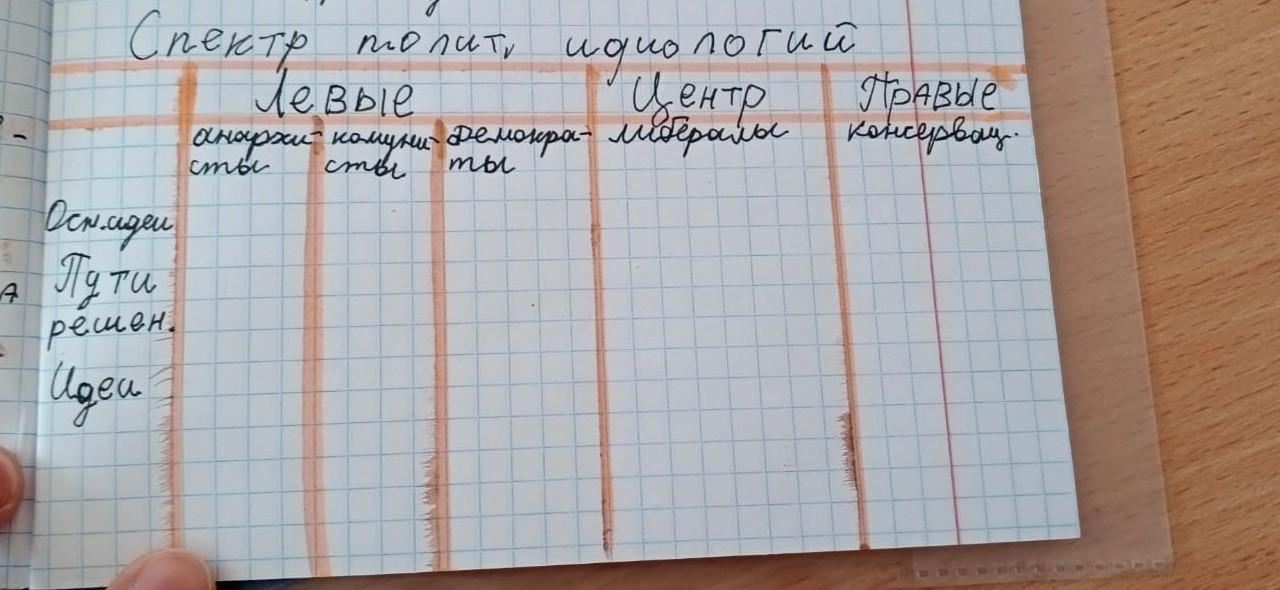 Спектр полит. идиологий
Левые Центр Правые
анархи- комуни- демокра- либералы консервац.
сты сты ты
Осн.идеи
Пути
решен.
Идеи